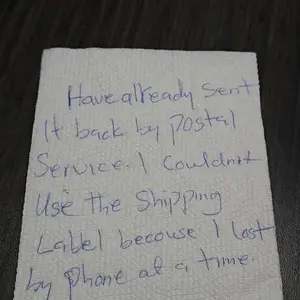 Have already sent
It back by postal
Service. I Couldn't
Use the Shipping
Label becouse I Lost
by phone at a time.